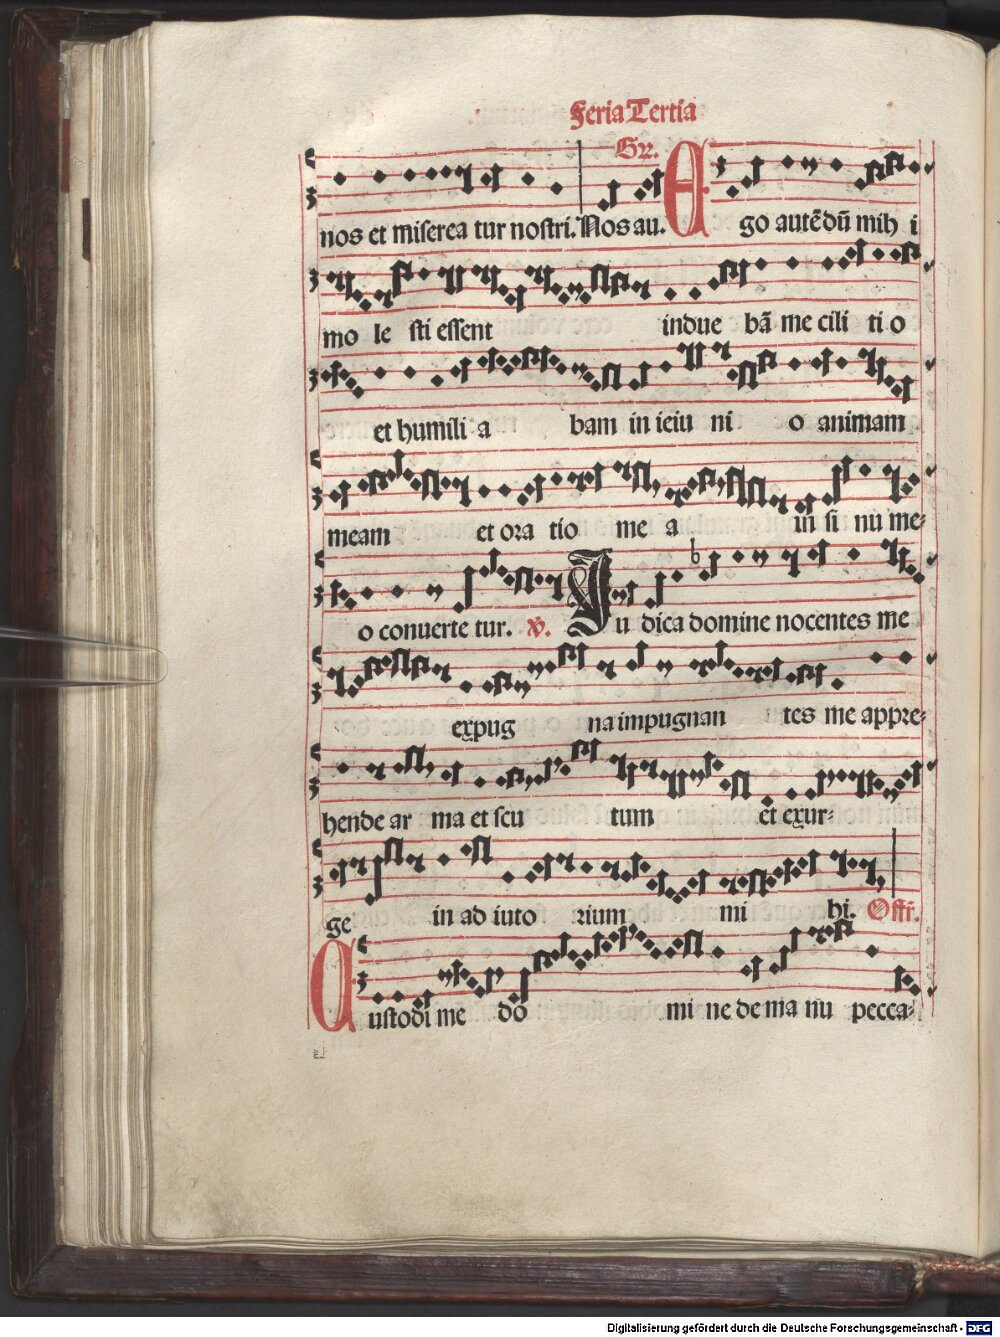 Feria Tertia
Gr.
nos et miserea tur nostri. Nos au. Ego autē dū mih i
mo le sti essent indue bā me cili ti o
et humili a bam in ieiu ni o animam
meam et ora tio me a in si nu me-
o conuerte tur. V. Iu dica domine nocentes me
expug na impugnan tes me appre-
hende ar ma et scu tum et exur-
ge in ad iuto rium mi hi. Offr.
Custodi me do mi ne de ma nu pecca-
Digitalisierung gefördert durch die Deutsche Forschungsgemeinschaft - DFG